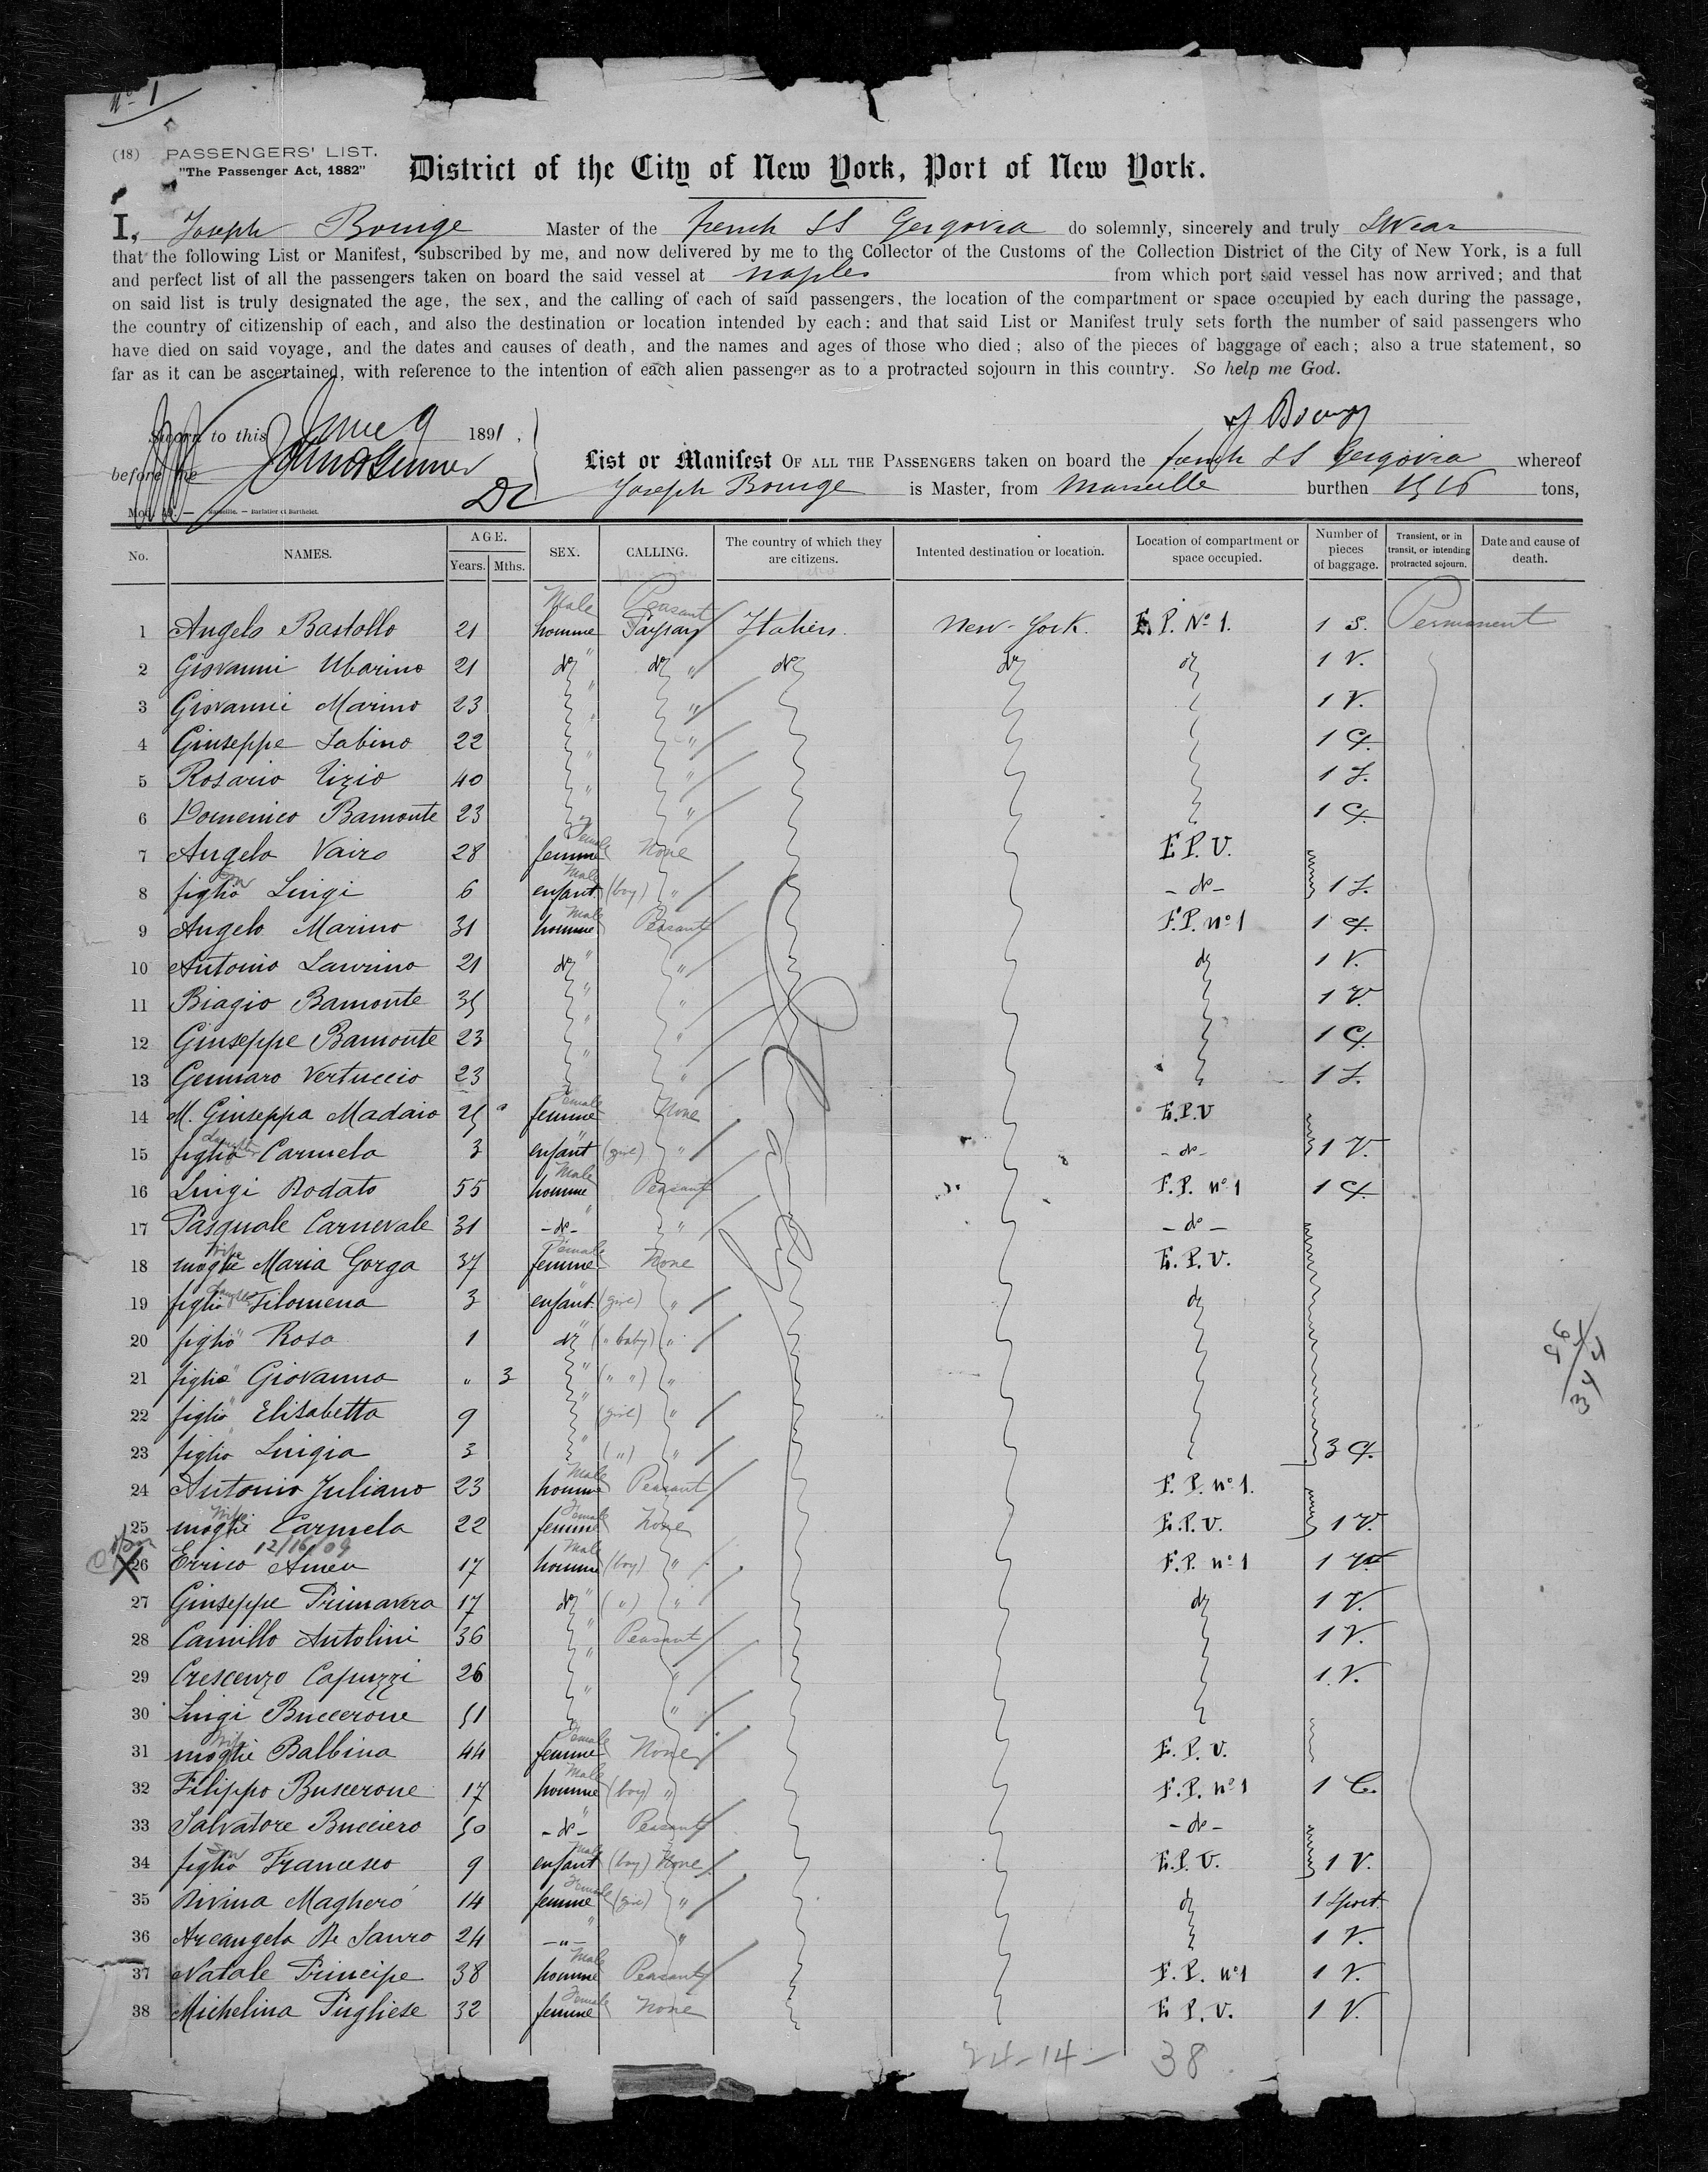 No 1
(18) PASSENGERS' LIST.
"The Passenger Act, 1882"
District of the City of New York, Port of New York.
I, Joseph Bouige Master of the french SS Gergovia do solemnly, sincerely and truly Swear
that the following List or Manifest, subscribed by me, and now delivered by me to the Collector of the Customs of the Collection District of the City of New York, is a full
and perfect list of all the passengers taken on board the said vessel at naples from which port said vessel has now arrived; and that
on said list is truly designated the age, the sex, and the calling of each of said passengers, the location of the compartment or space occupied by each during the passage,
the country of citizenship of each, and also the destination or location intended by each: and that said List or Manifest truly sets forth the number of said passengers who
have died on said voyage, and the dates and causes of death, and the names and ages of those who died; also of the pieces of baggage of each; also a true statement, so
far as it can be ascertained, with reference to the intention of each alien passenger as to a protracted sojourn in this country. So help me God.
Sworn to this June 9 1891,
before me
DC
List or Manifest OF ALL THE PASSENGERS taken on board the french SS Gergovia whereof
Joseph Bouige is Master, from Marseille burthen 1516 tons,
Marseille. — Barlatier et Barthelet.
No. NAMES. AGE. Years. Mths. SEX. CALLING. The country of which they are citizens. Intented destination or location. Location of compartment or space occupied. Number of pieces of baggage. Transient, or in transit, or intending protracted sojourn. Date and cause of death.
Male Peasant
1 Angelo Bastollo 21 homme Paysan Italien. New-York. E.P. No 1. 1 S. Permanent
2 Giovanni Marino 21 do " do " do do do 1 V.
3 Giovanni Marino 23 " " 1 V.
4 Giuseppe Sabino 22 " " 1 C.
5 Rosario Tizio 40 " " 1 S.
6 Domenico Bamonte 23 " " 1 C.
7 Angela Vairo 28 femme Female None E P. V.
8 figlio son Luigi 6 enfant Male (boy) " - do - 1 S.
9 Angelo Marino 31 homme Male Peasant F.P. no 1 1 C.
10 Antonio Laurino 21 do " " do 1 V.
11 Biagio Bamonte 35 " " 1 V.
12 Giuseppe Bamonte 23 " " 1 C.
13 Gennaro Vertuccio 23 " " 1 S.
14 M. Giuseppa Madaio 25 femme Female None E.P.V
15 figlia Carmela 3 enfant " (girl) " - do - 1 V.
16 Luigi Rodato 55 homme Male Peasant F.P. no 1 1 C.
17 Pasquale Carnevale 31 - do - " " - do -
18 moglie wife Maria Gorga 37 femme Female None E. P. V.
19 figlia daughter Filomena 3 enfant " (girl) " do
20 figlia " Rosa 1 do " (" baby) "
21 figlia " Giovanna " 3 " (" ") "
22 figlia " Elisabetta 9 " (girl) "
23 figlia Luigia 3 " (") " 3 C.
24 Antonio Juliano 23 homme Male Peasant F. P. no 1.
25 moglie wife Carmela 22 femme Female None E.P.V. 1 V.
12/16/09
26 Errico Amea 17 homme Male (boy) " F.P. no 1 1 V.
27 Giuseppe Primavera 17 do " (") " do 1 V.
28 Camillo Antolini 36 " Peasant 1 V.
29 Crescenzo Capuzzi 26 " " 1 V.
30 Luigi Buccerone 51 " "
31 moglie wife Balbina 44 femme Female None E. P. V.
32 Filippo Buscerone 17 homme Male (boy) " F.P. no 1 1 C.
33 Salvatore Bucciero 50 - do - " Peasant - do -
34 figlio son Francesco 9 enfant Male (boy) None E.P.V. 1 V.
35 Divina Magheró 14 femme Female (girl) " do 1 Sport.
36 Arcangela De Sauro 24 - " - " " 1 V.
37 Natale Principe 38 homme Male Peasant F. P. no 1 1 V.
38 Michelina Pugliese 32 femme Female None E P. V. 1 V.
24-14- 38